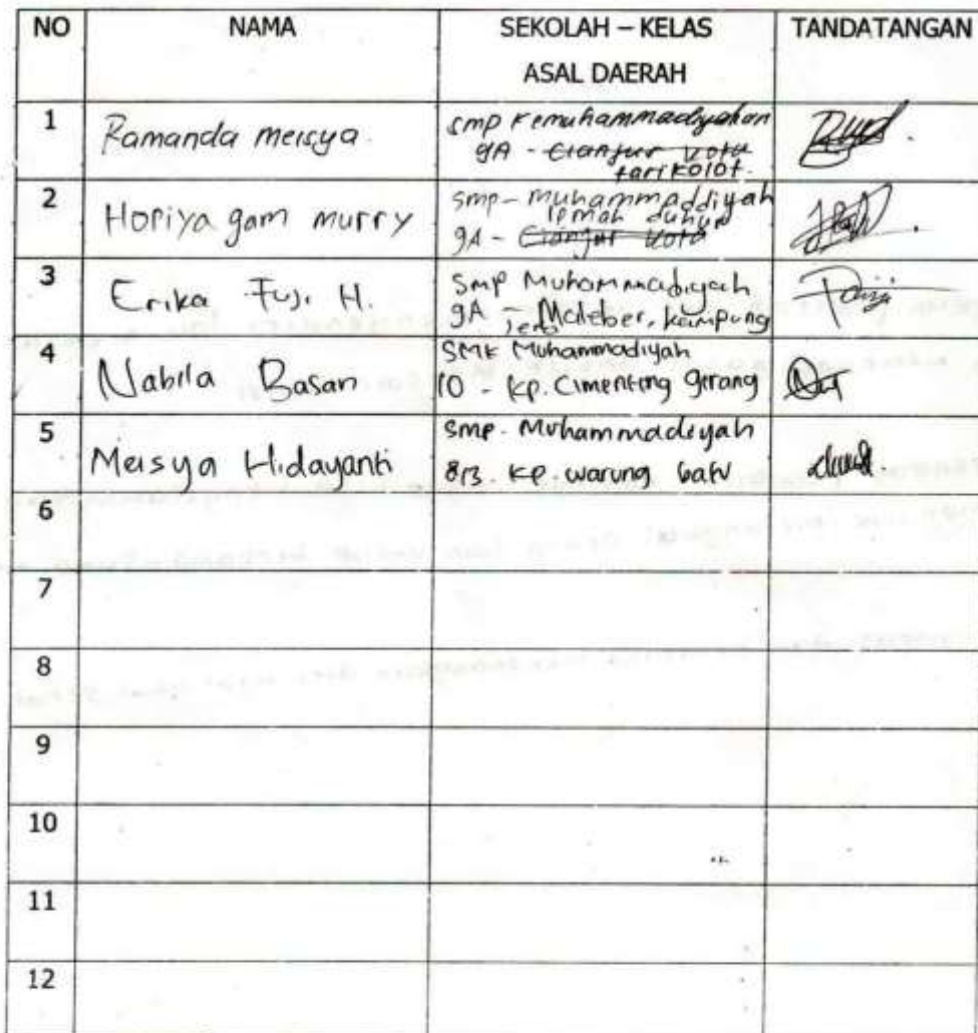 NO NAMA SEKOLAH – KELAS TANDATANGAN
ASAL DAERAH
1 Ramanda meisya. smp Kemuhammadiyahan
9A - Cianjur kota
tarikolot.
2 Hopiya gam murry smp - muhammaddiyah
lemah duhur
9A - Cianjur kota
3 Erika Fuji H. SMP Muhammadiyah
9A - Maleber, kampung
4 Nabila Basan SMK Muhammadiyah
10 - Kp. Cimenteng gerang
5 Meisya Hidayanti SMP. Muhammadiyah
8B. KP. warung batu
6
7
8
9
10
11
12